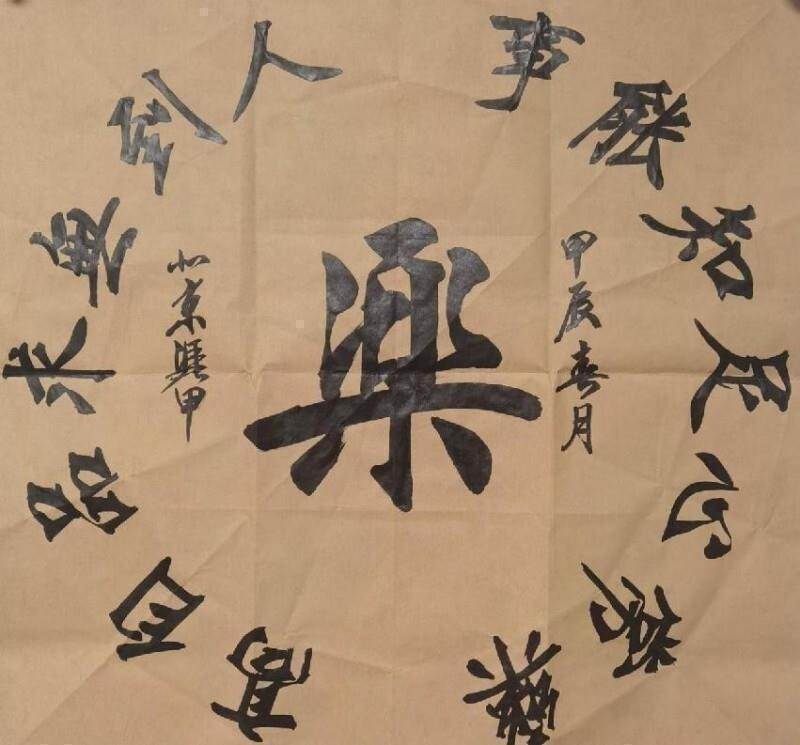 事能知足心常樂
人到無求品自高
樂
甲辰春月
北京 甲